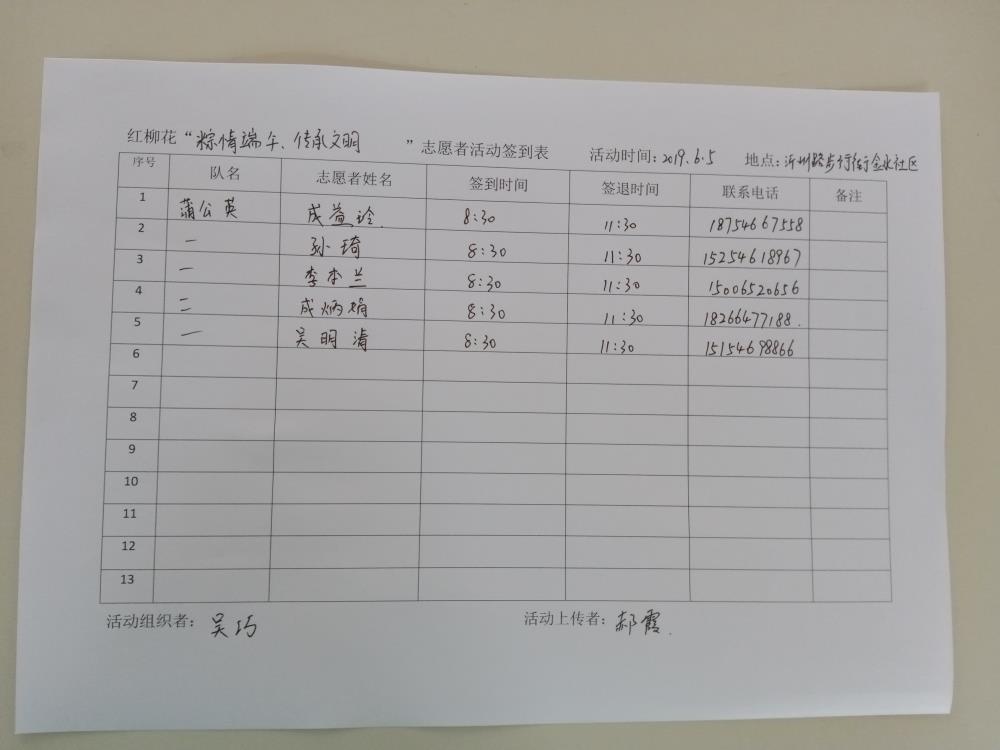 红柳花“粽情端午、传承文明”志愿者活动签到表 活动时间：2019.6.5 地点：沂州路步行街金水社区
序号 队名 志愿者姓名 签到时间 签退时间 联系电话 备注
1 蒲公英 成益玲 8:30 11:30 18754667558
2 一 孙琦 8:30 11:30 15254618967
3 一 李本兰 8:30 11:30 15006520656
4 二 成炳娟 8:30 11:30 18266477188
5 一 吴明清 8:30 11:30 15154698866
6
7
8
9
10
11
12
13
活动组织者：吴巧 活动上传者：郝霞